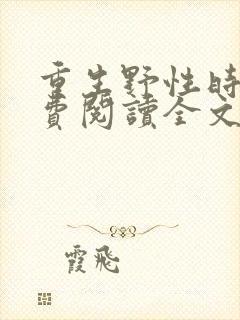 重生野性時
費閱讀全文
霞飛